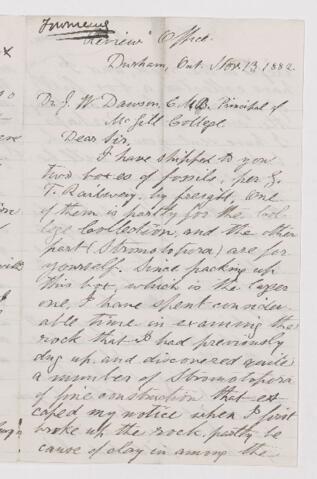 Townsend
"Review" Office.
Durham, Ont. Nov. 13, 1882.
Dr. J. W. Dawson, C.M.G. Principal of
McGill College.
Dear Sir,
I have shipped to you
two boxes of fossils, per G.
T. Railway, by freight, One
of them is partly for the Col-
lege Collection, and the other
part (Stromatopora) are for
yourself. Since packing up
this box, which is the larger
one, I have spent consider-
able time in examing the
rock that I had previously
dug up, and discovered quite
a number of Stromotopora
of fine construction that es-
caped my notice when I first
broke up the rock, partly be
cause of clay in among the